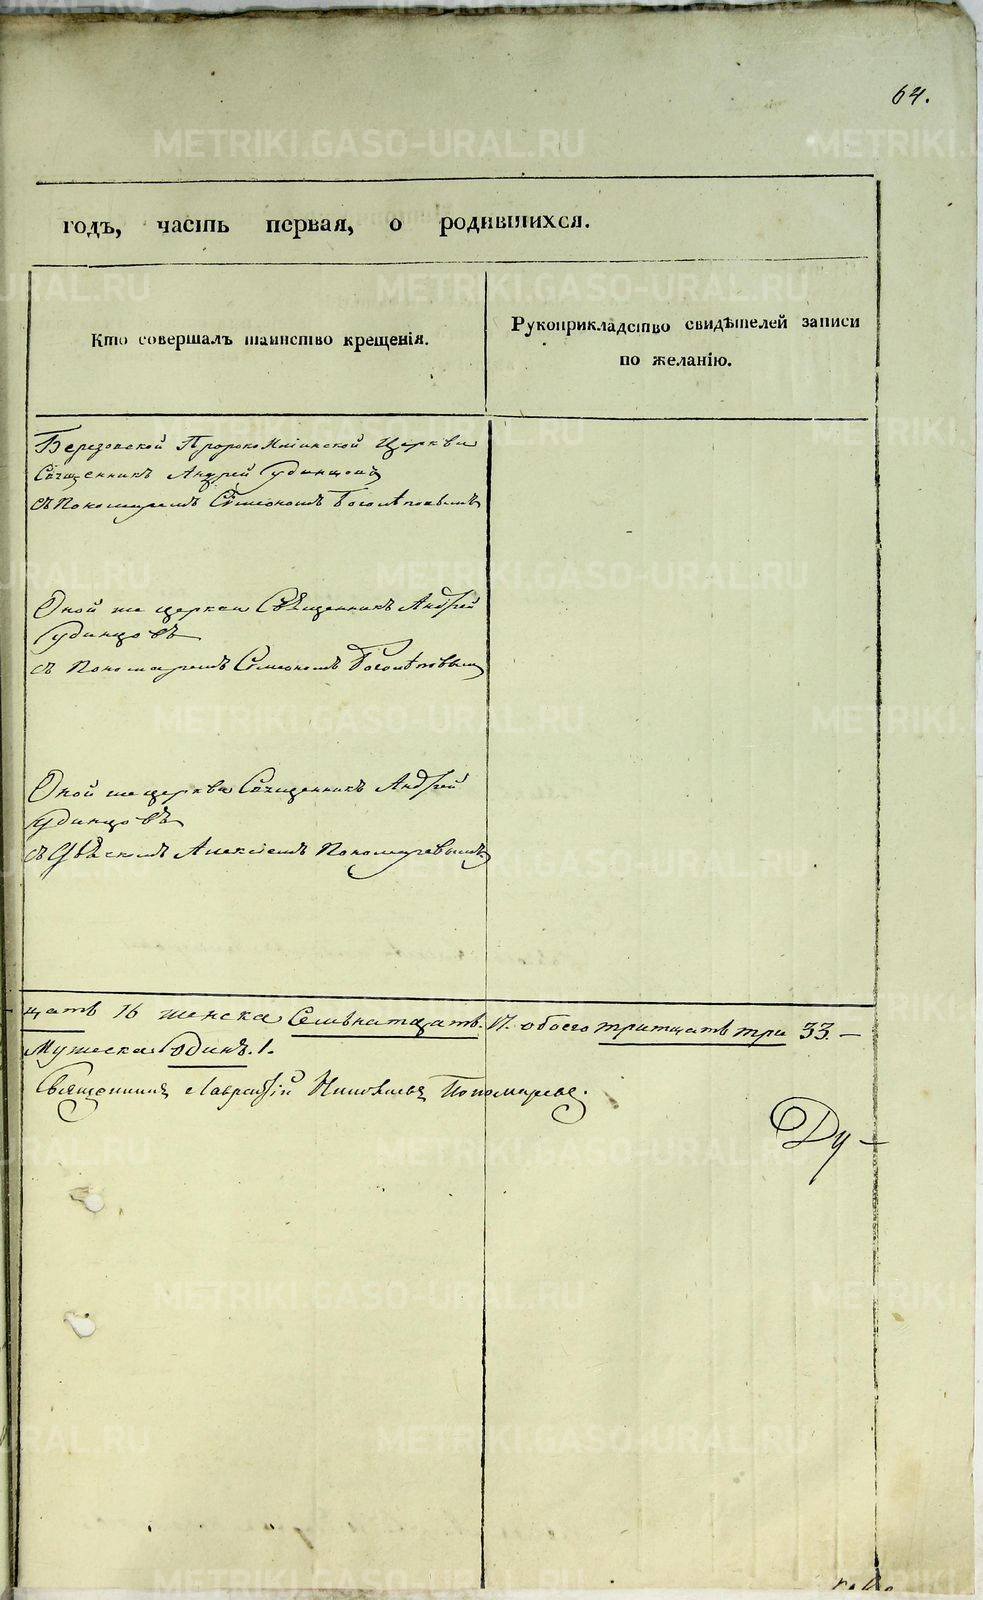 64.
годъ, часть первая, о родившихся.
Кто совершалъ таинство крещенія.
Рукоприкладство свидѣтелей записи
по желанію.
Березовской ПророкоИліинской Церкви
Священникъ Андрей Удинцовъ
съ Пономаремъ Сѵмеономъ Боголѣповымъ
Оной же церкви Священникъ Андрей
Удинцовъ
съ Пономаремъ Сѵмеономъ Боголѣповымъ
Оной же церкви Священникъ Андрей
Удинцовъ
съ Алексіемъ Пономаревымъ
цать 16 женска Семьнатцать. 17. обоего тритцать три 33. —
Мужеска Одинъ. 1.
Священникъ Лаврентій Пономаревъ.
Ду —
METRIKI.GASO-URAL.RU